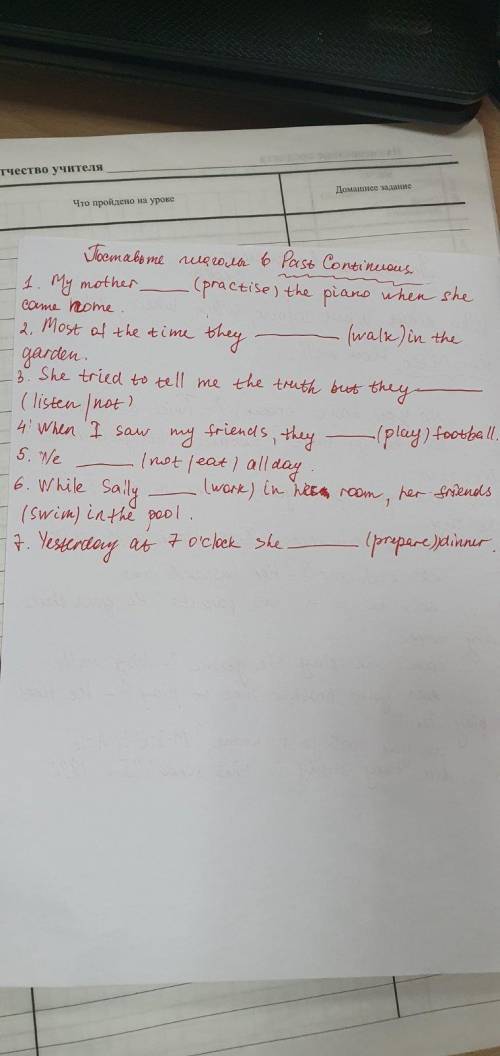 тчество учителя
Что пройдено на уроке
Домашнее задание
Поставьте глаголы в Past Continuous.
1. My mother ____ (practise) the piano when she
came home.
2. Most of the time they ________ (walk) in the
garden.
3. She tried to tell me the truth but they ______
(listen/not)
4. When I saw my friends, they ____ (play) football.
5. We _____ (not/eat) all day.
6. While Sally ____ (work) in her room, her friends
(swim) in the pool.
7. Yesterday at 7 o'clock she ______ (prepare) dinner.